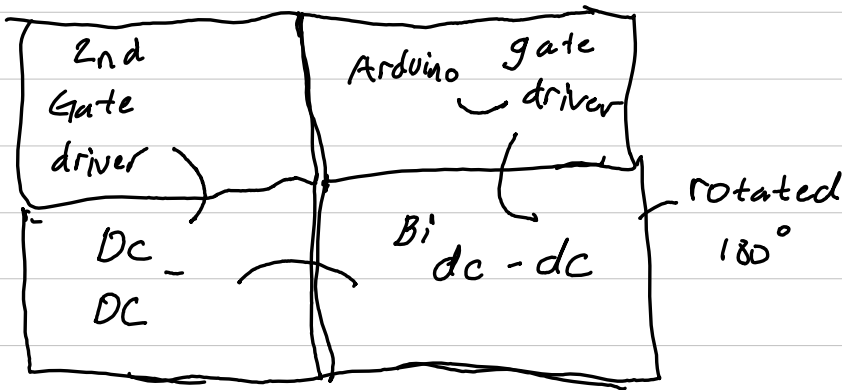 2nd
Gate
driver
Arduino gate
driver
DC -
DC
Bi
dc - dc
rotated
180°